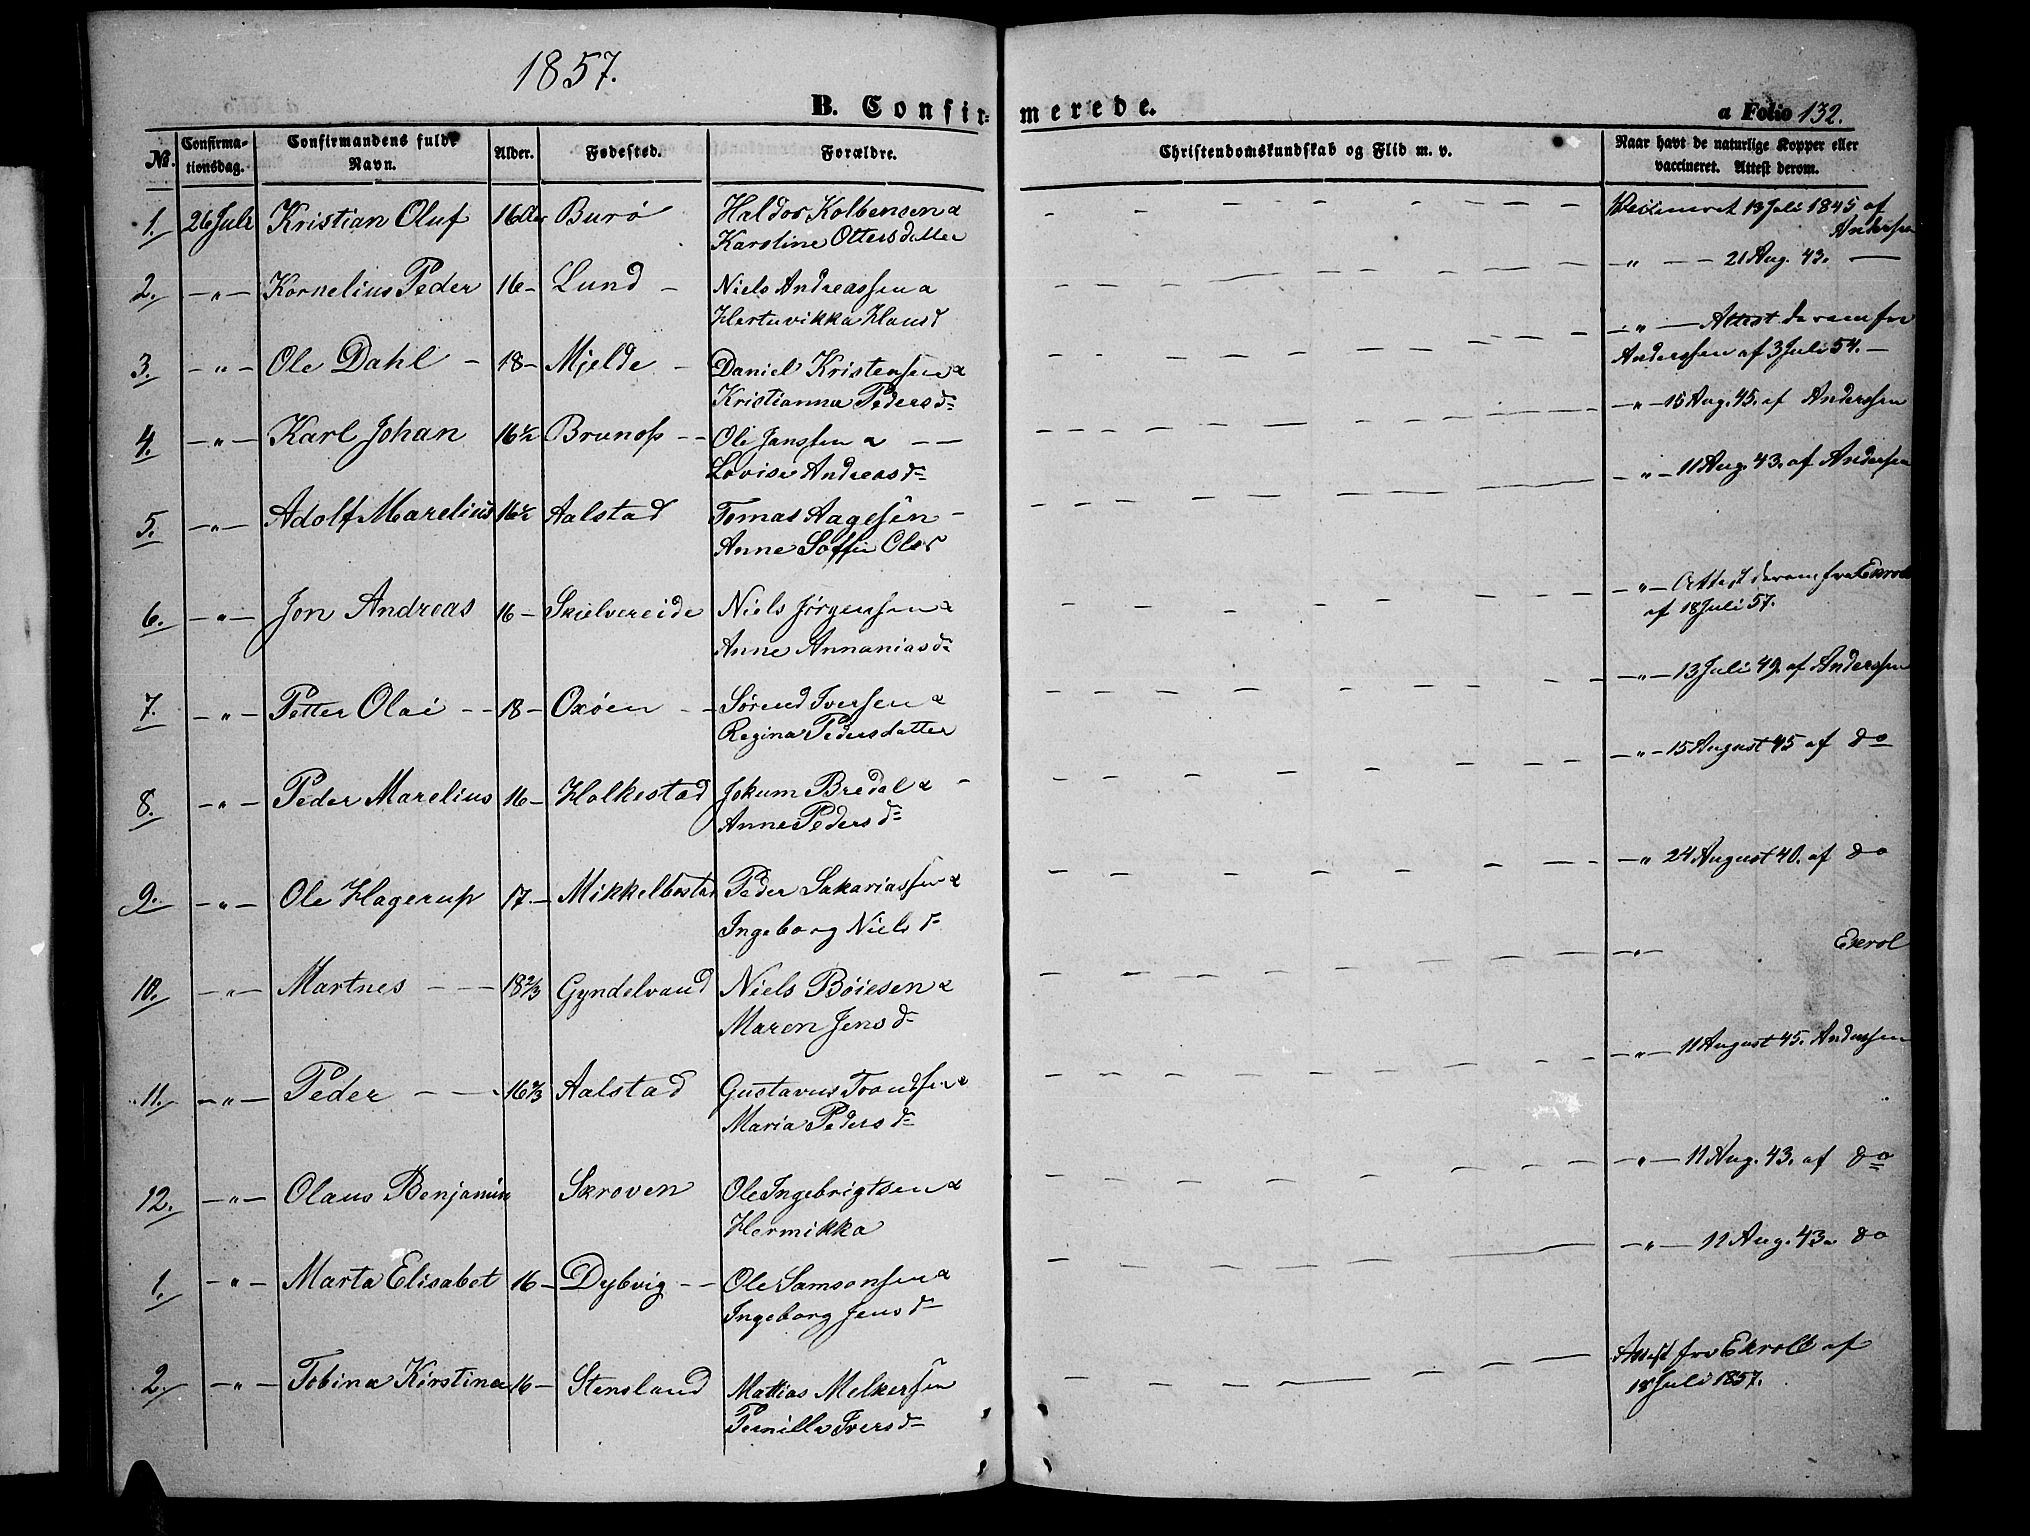 1857.
B. Confirmerede.
a Folio 132.
No. Confirmationsdag. Confirmandens fulde Navn. Alder. Fødested. Forældre. Christendomskundskab og Flid m. v. Naar havt de naturlige Kopper eller vaccineret. Attest derom.
1. 26 Juli Kristian Oluf 16 Burø Haldor Kolbensen &
Karoline Ottersdatter
13 Juli 1845 af
Andersen
2. – " – Kornelius Peder 16 – Lund – Niels Andreassen &
Hertuvikka Hansd
– " – – 21 Aug. 43. –
3. – " – Ole Dahl – 18 – Mjelde – Daniel Kristensen &
Kristianna Pedersd=
– " – Attest derom fra
Anderssen af 3 Juli 54. –
4. – " – Karl Johan 16½ Brunoss – – Ole Janssen & – –
Lovise Andreasd=
– " – 15 Aug. 45. af Anderssen
5. – " – Adolf Marelius 16½ Aalstad Tomas Aagesen –
Anne Soffie Olesd
– " – 11 Aug. 43. af Andersen
6. – " – Jon Andreas 16 – Skielvereide Niels Jørgensen &
Anne Annaniasd=
– " – Attest derom fra Ekroll
af 18 Juli 57.
7. – " – Petter Olai – – 18 – Oxøen – – Sørend Iversen &
Regina Pedersdatter
– " – 13 Juli 49. af Anderssen
8. – " – Peder Marelius 16 – Holkestad Jokum Bredal & –
Anne Pedersd=
– " – 15 August 45 af do
9. – " – Ole Hagerup 17. – Mikkelbostad Peder Sakariassen &
Ingeborg Nielsd=
– " 24 August 40. af do
10. – " – Martnes – – 18⅔ Gyndelvand Niels Bøiesen &
Maren Jensd=
– " – Ekrol
11. – " – Peder – – 16⅔ Aalstad Gustavus Trondsen &
Maria Pedersd=
– " – 11 August 45. Anderssen
12. – " – Olaus Benjamin Skroven Ole Ingebrigtsen &
Hermikka
– " – 11 Aug. 43. af do
1. – " – Marta Elisabet 16 – Dybvig – – Ole Samsonsen &
Ingeborg Jensd=
– " – 11 Aug. 43. do
2. – " – Tobina Kirstina 16 – Stensland Mattias Melkersen
Pernille Iversd=
Attest fra Ekroll af
18 Juli 1857.